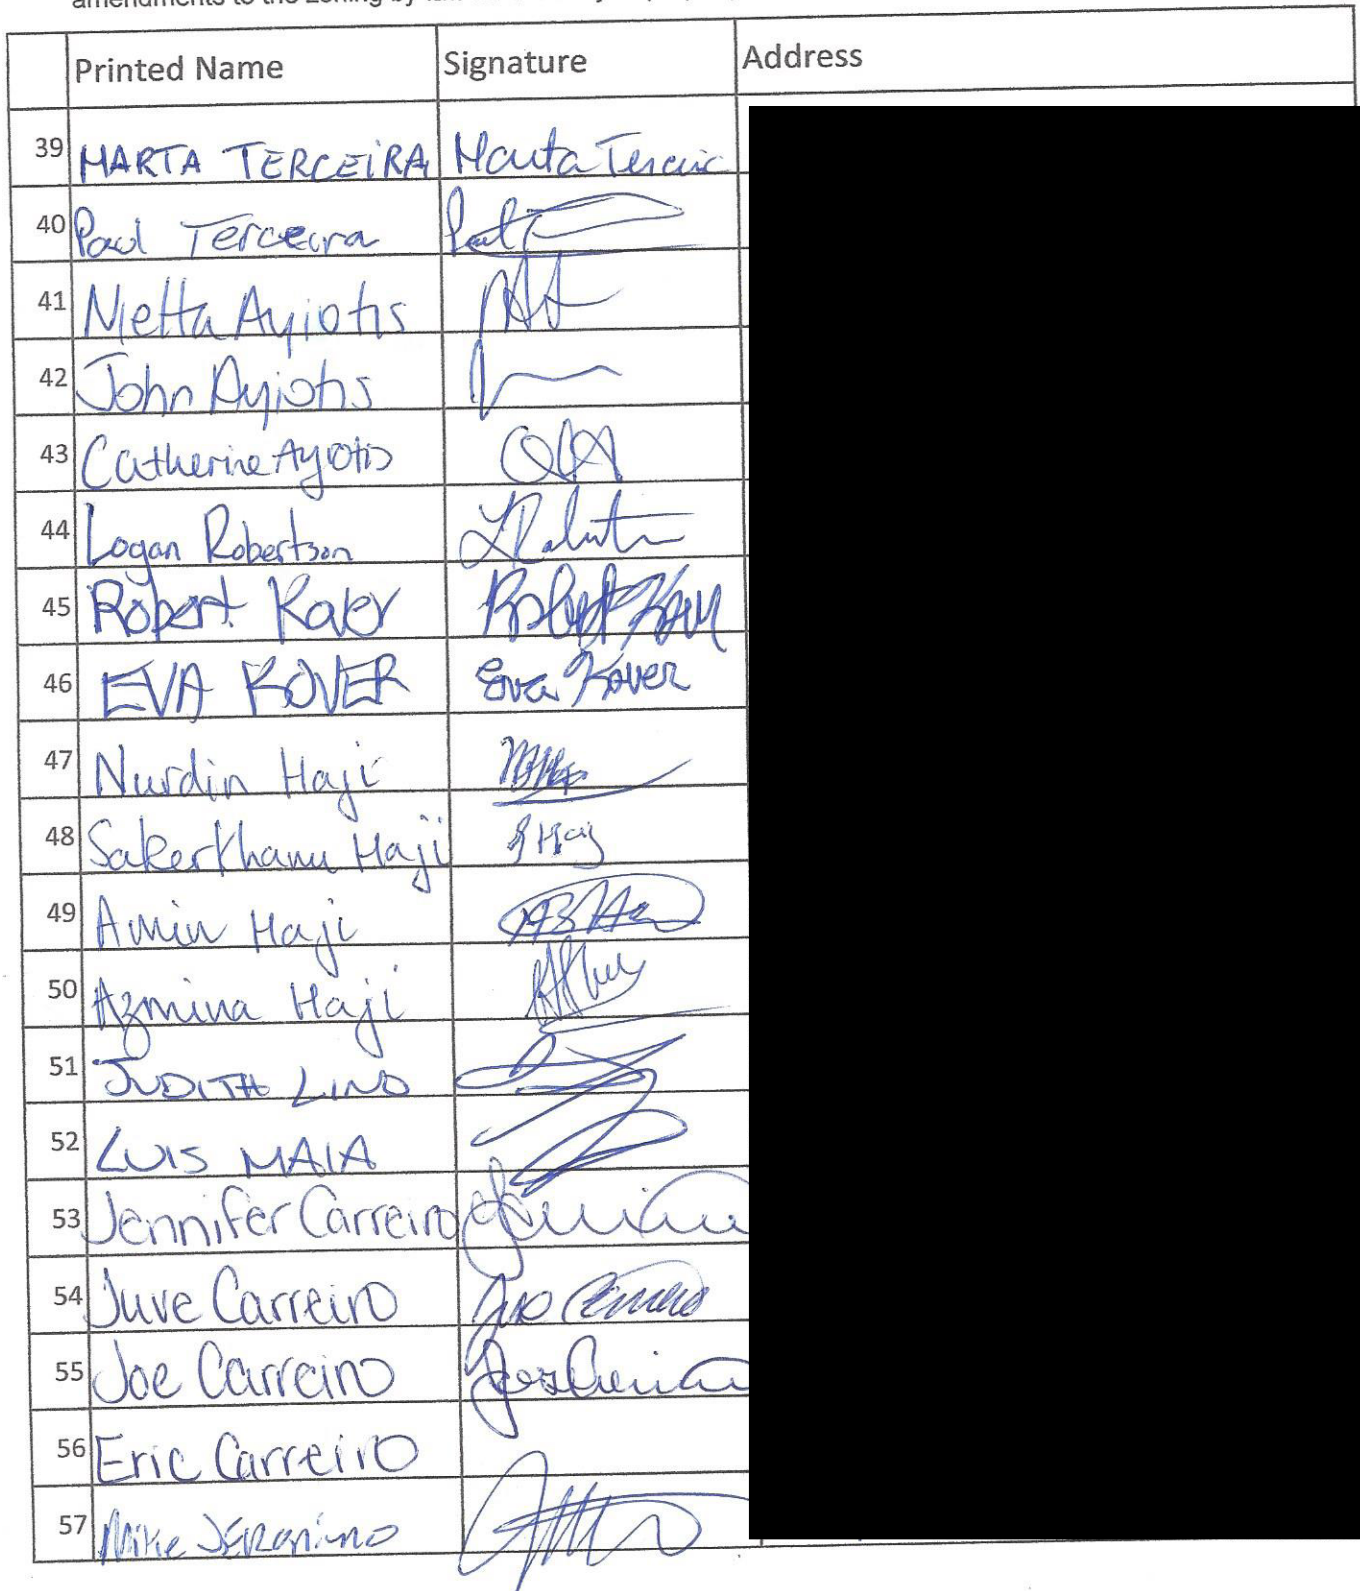 amendments to the zoning by-law
Printed Name Signature Address
39 MARTA TERCEIRA Marta Terceira
40 Paul Terceira
41 Nietta Ayiotis
42 John Ayiotis
43 Catherine Ayiotis
44 Logan Robertson
45 Robert Kover Robert Kover
46 EVA KOVER Eva Kover
47 Nurdin Haji
48 Sakerkhanu Haji S Haji
49 Amin Haji
50 Azmina Haji
51 JUDITH LINO
52 LUIS MAIA
53 Jennifer Carreiro
54 Juve Carreiro
55 Joe Carreiro
56 Eric Carreiro
57 Mike JERONIMO